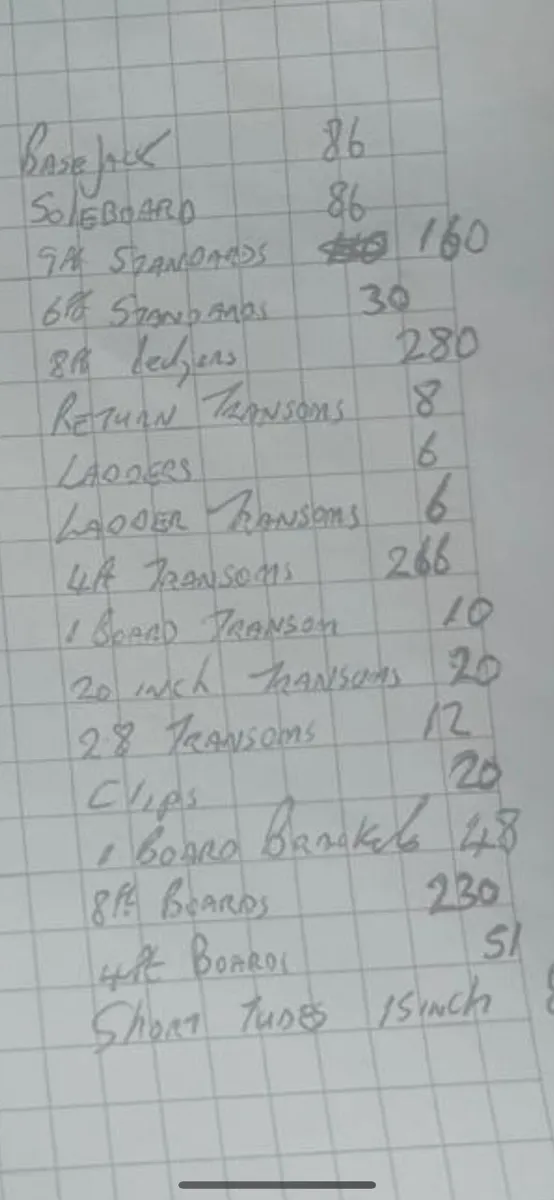 BASE JACK 86
SOLEBOARD 86
9ft STANDARDS 160
6ft STANDARDS 30
8ft Ledgers 280
RETURN TRANSOMS 8
LADDERS 6
LADDER TRANSOMS 6
4ft TRANSOMS 266
1 BOARD TRANSOM 10
20 inch TRANSOMS 20
28 TRANSOMS 12
Clips 20
1 BOARD BRACKETS 48
8ft BOARDS 230
4ft BOARDS 51
SHORT TUBES 15 inch